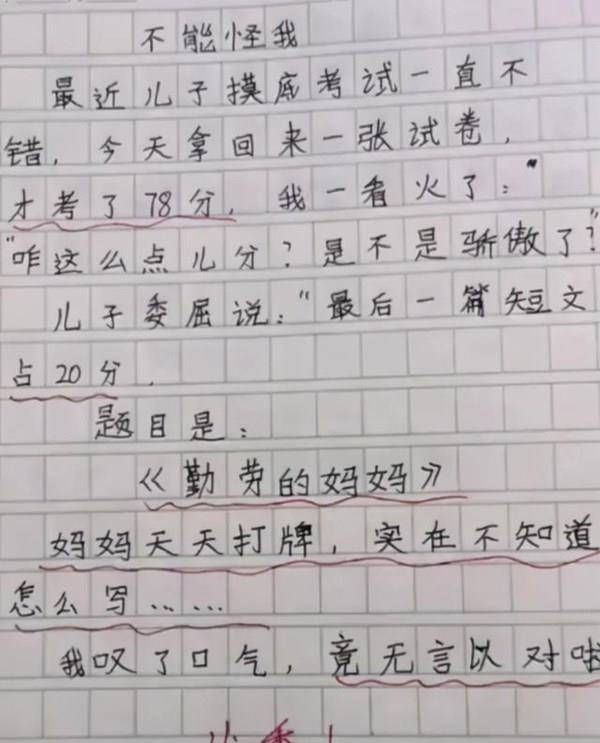 不能怪我
最近儿子摸底考试一直不
错，今天拿回来一张试卷，
才考了78分，我一看火了："
"咋这么点儿分？是不是骄傲了？"
儿子委屈说："最后一篇短文
占20分．
题目是：
《勤劳的妈妈》
妈妈天天打牌，实在不知道
怎么写……
我叹了口气，竟无言以对啦